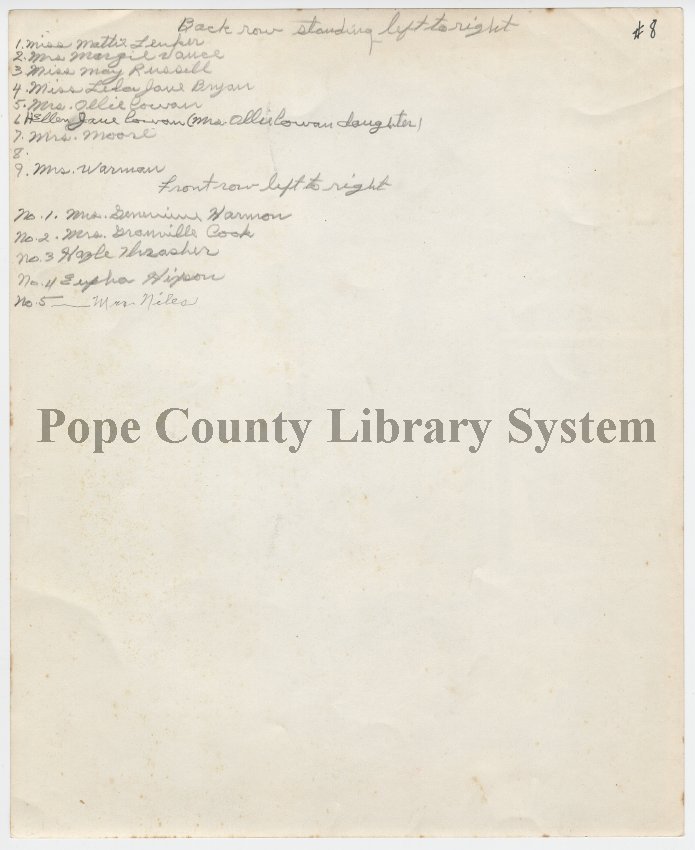 Back row standing left to right
#8
1. Miss Mattie Lenker
2. Mrs Margie Vance
3 Miss May Russell
4. Miss Lela Jane Bryan
5. Mrs. Ollie Cowan
6 Hellen Jane Cowan (Mrs. Ollie Cowan daughter)
7. Mrs. Moore
8.
9. Mrs. Warman
Front row left to right
No. 1. Mrs. Genevieve Harmon
No. 2. Mrs. Granville Cook
No. 3 Thrasher
No. 4 Eupha Hipson
No. 5 — Mrs. Niles
Pope County Library System